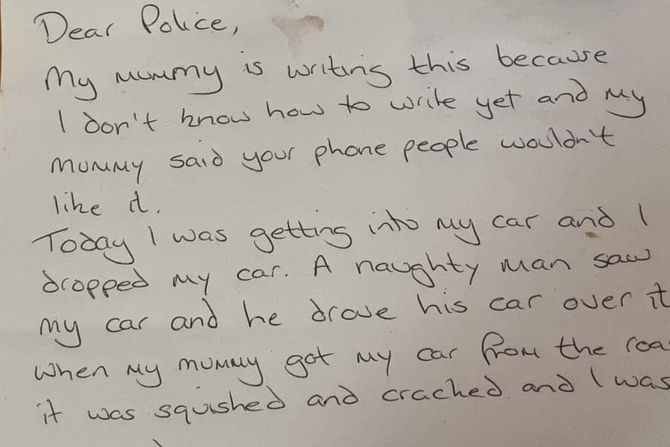 Dear Police,
My mummy is writing this because
I don't know how to write yet and my
mummy said your phone people wouldn't
like it.
Today I was getting into my car and I
dropped my car. A naughty man saw
my car and he drove his car over it
when my mummy got my car from the roa
it was squished and cracked and I was